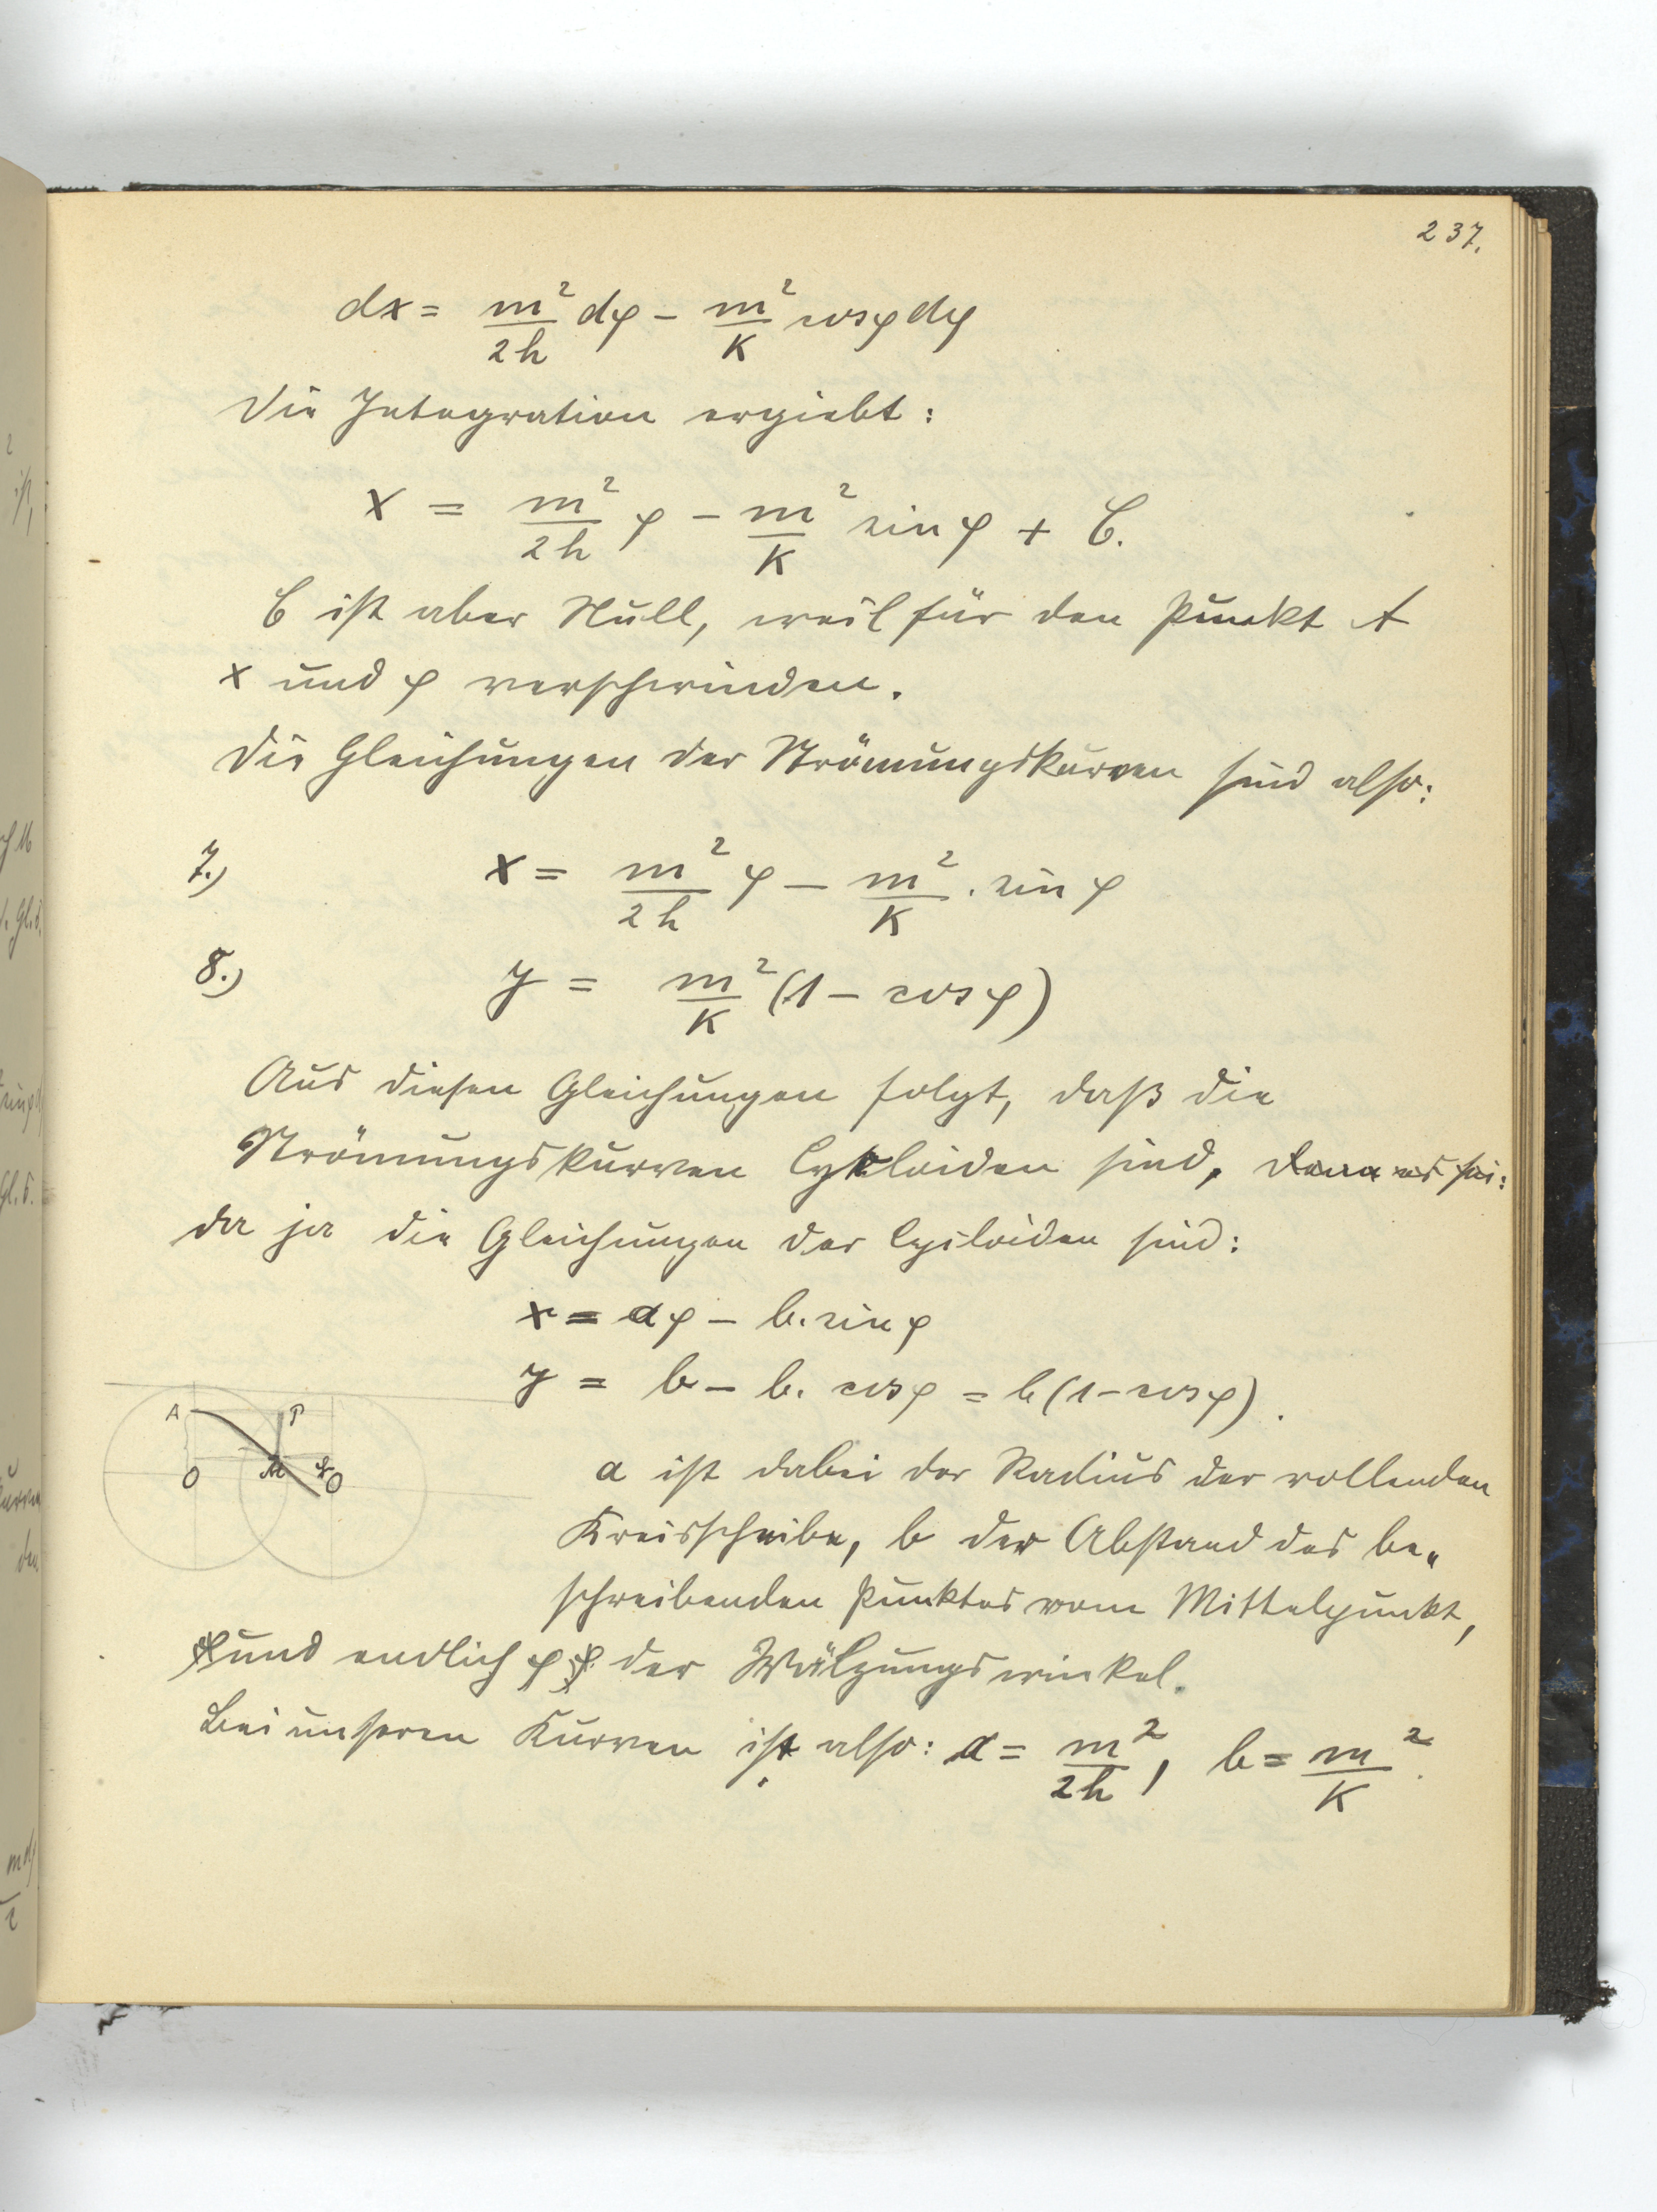 237.
dx = m²/2h dφ − m²/K cosφ dφ
Die Integration ergiebt:
x = m²/2h φ − m²/K sin φ + C.
C ist aber Null, weil für den Punkt A
x und φ verschwinden.
Die Gleichungen der Strömungskurven sind also:
7.) x = m²/2h φ − m²/K . sin φ
8.) y = m²/K (1 − cos φ)
Aus diesen Gleichungen folgt, daß die
Strömungskurven Cykloiden sind,
da ja die Gleichungen der Cycloiden sind:
x = aφ − b. sin φ
y = b − b. cos φ = b (1 − cos φ).
A P
O M O
a ist dabei der Radius der rollenden
Kreisscheibe, b der Abstand des be„
schreibenden Punktes vom Mittelpunkt,
und endlich φ der Wälzungswinkel.
Bei unseren Kurven ist also: a = m²/2h, b = m²/K.